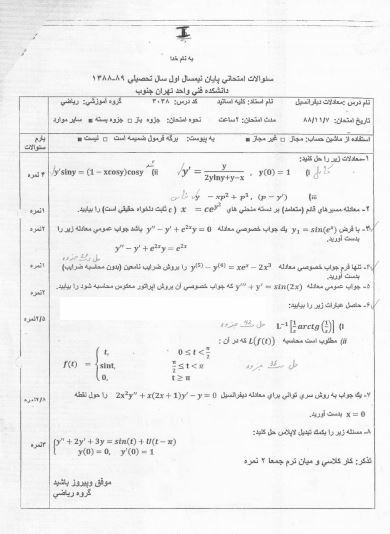 I
به نام خدا
سئوالات امتحانی پایان نیمسال اول سال تحصیلی ۸۹-۱۳۸۸
دانشکده فنی واحد تهران جنوب
نام درس: معادلات دیفرانسیل نام استاد: کلیه اساتید کد درس: ۳۰۳۸ گروه آموزشی: ریاضی
تاریخ امتحان: ۸۸/۱۱/۷ مدت امتحان: ۲ساعت نحوه امتحان: جزوه باز □ جزوه بسته ■ سایر موارد
استفاده از ماشین حساب: مجاز □ غیر مجاز ■ به پیوست: برگه فرمول ضمیمه است □ نیست ■ بارم سئوالات
۱- معادلات زیر را حل کنید:
i) y' = y / (2y lny + y − x) , y(0) = 1 ii) y'siny = (1 − xcosy)cosy ۴ نمره
iii) y − xp² + p³, (p = y')
۲- معادله مسیرهای قائم (متعامد) بر دسته منحنی های x = ce^(y²) (c ثابت دلخواه حقیقی است) را بیابید. ۱نمره
۳- با فرض y₁ = sin(eˣ) یک جواب خصوصی معادله y'' − y' + e^(2x)y = 0 باشد جواب عمومی معادله زیر را بدست آورید. ۲نمره
y'' − y' + e^(2x)y = e^(2x)
۴- تنها فرم جواب خصوصی معادله y⁽⁵⁾ − y⁽⁴⁾ = xeˣ − 2x³ را بروش ضرایب نامعین (بدون محاسبه ضرایب) بدست آورید. ۱نمره
۵- جواب عمومی معادله y''' + y' = sin(2x) که جواب خصوصی آن بروش اپراتور معکوس محاسبه شود را بیابید. ۲نمره
۶- حاصل عبارات زیر را بیابید:
i) L⁻¹[1/s arctg(1/s)] ۲/۵نمره
ii) مطلوب است محاسبه L(f(t)) که در آن:
f(t) = { t, 0 ≤ t < π/2
sint, π/2 ≤ t < π
0, t ≥ π
۷- یک جواب به روش سری توانی برای معادله دیفرانسیل 2x²y'' + x(2x + 1)y' − y = 0 حول نقطه
x = 0 بدست آورید.
۸- مسئله زیر را بکمک تبدیل لاپلاس حل کنید:
{ y'' + 2y' + 3y = sin(t) + U(t − π)
y(0) = 0, y'(0) = 1 ۳نمره
تذکر: کار کلاسی و میان ترم جمعا ۲ نمره
موفق وپیروز باشید
گروه ریاضی